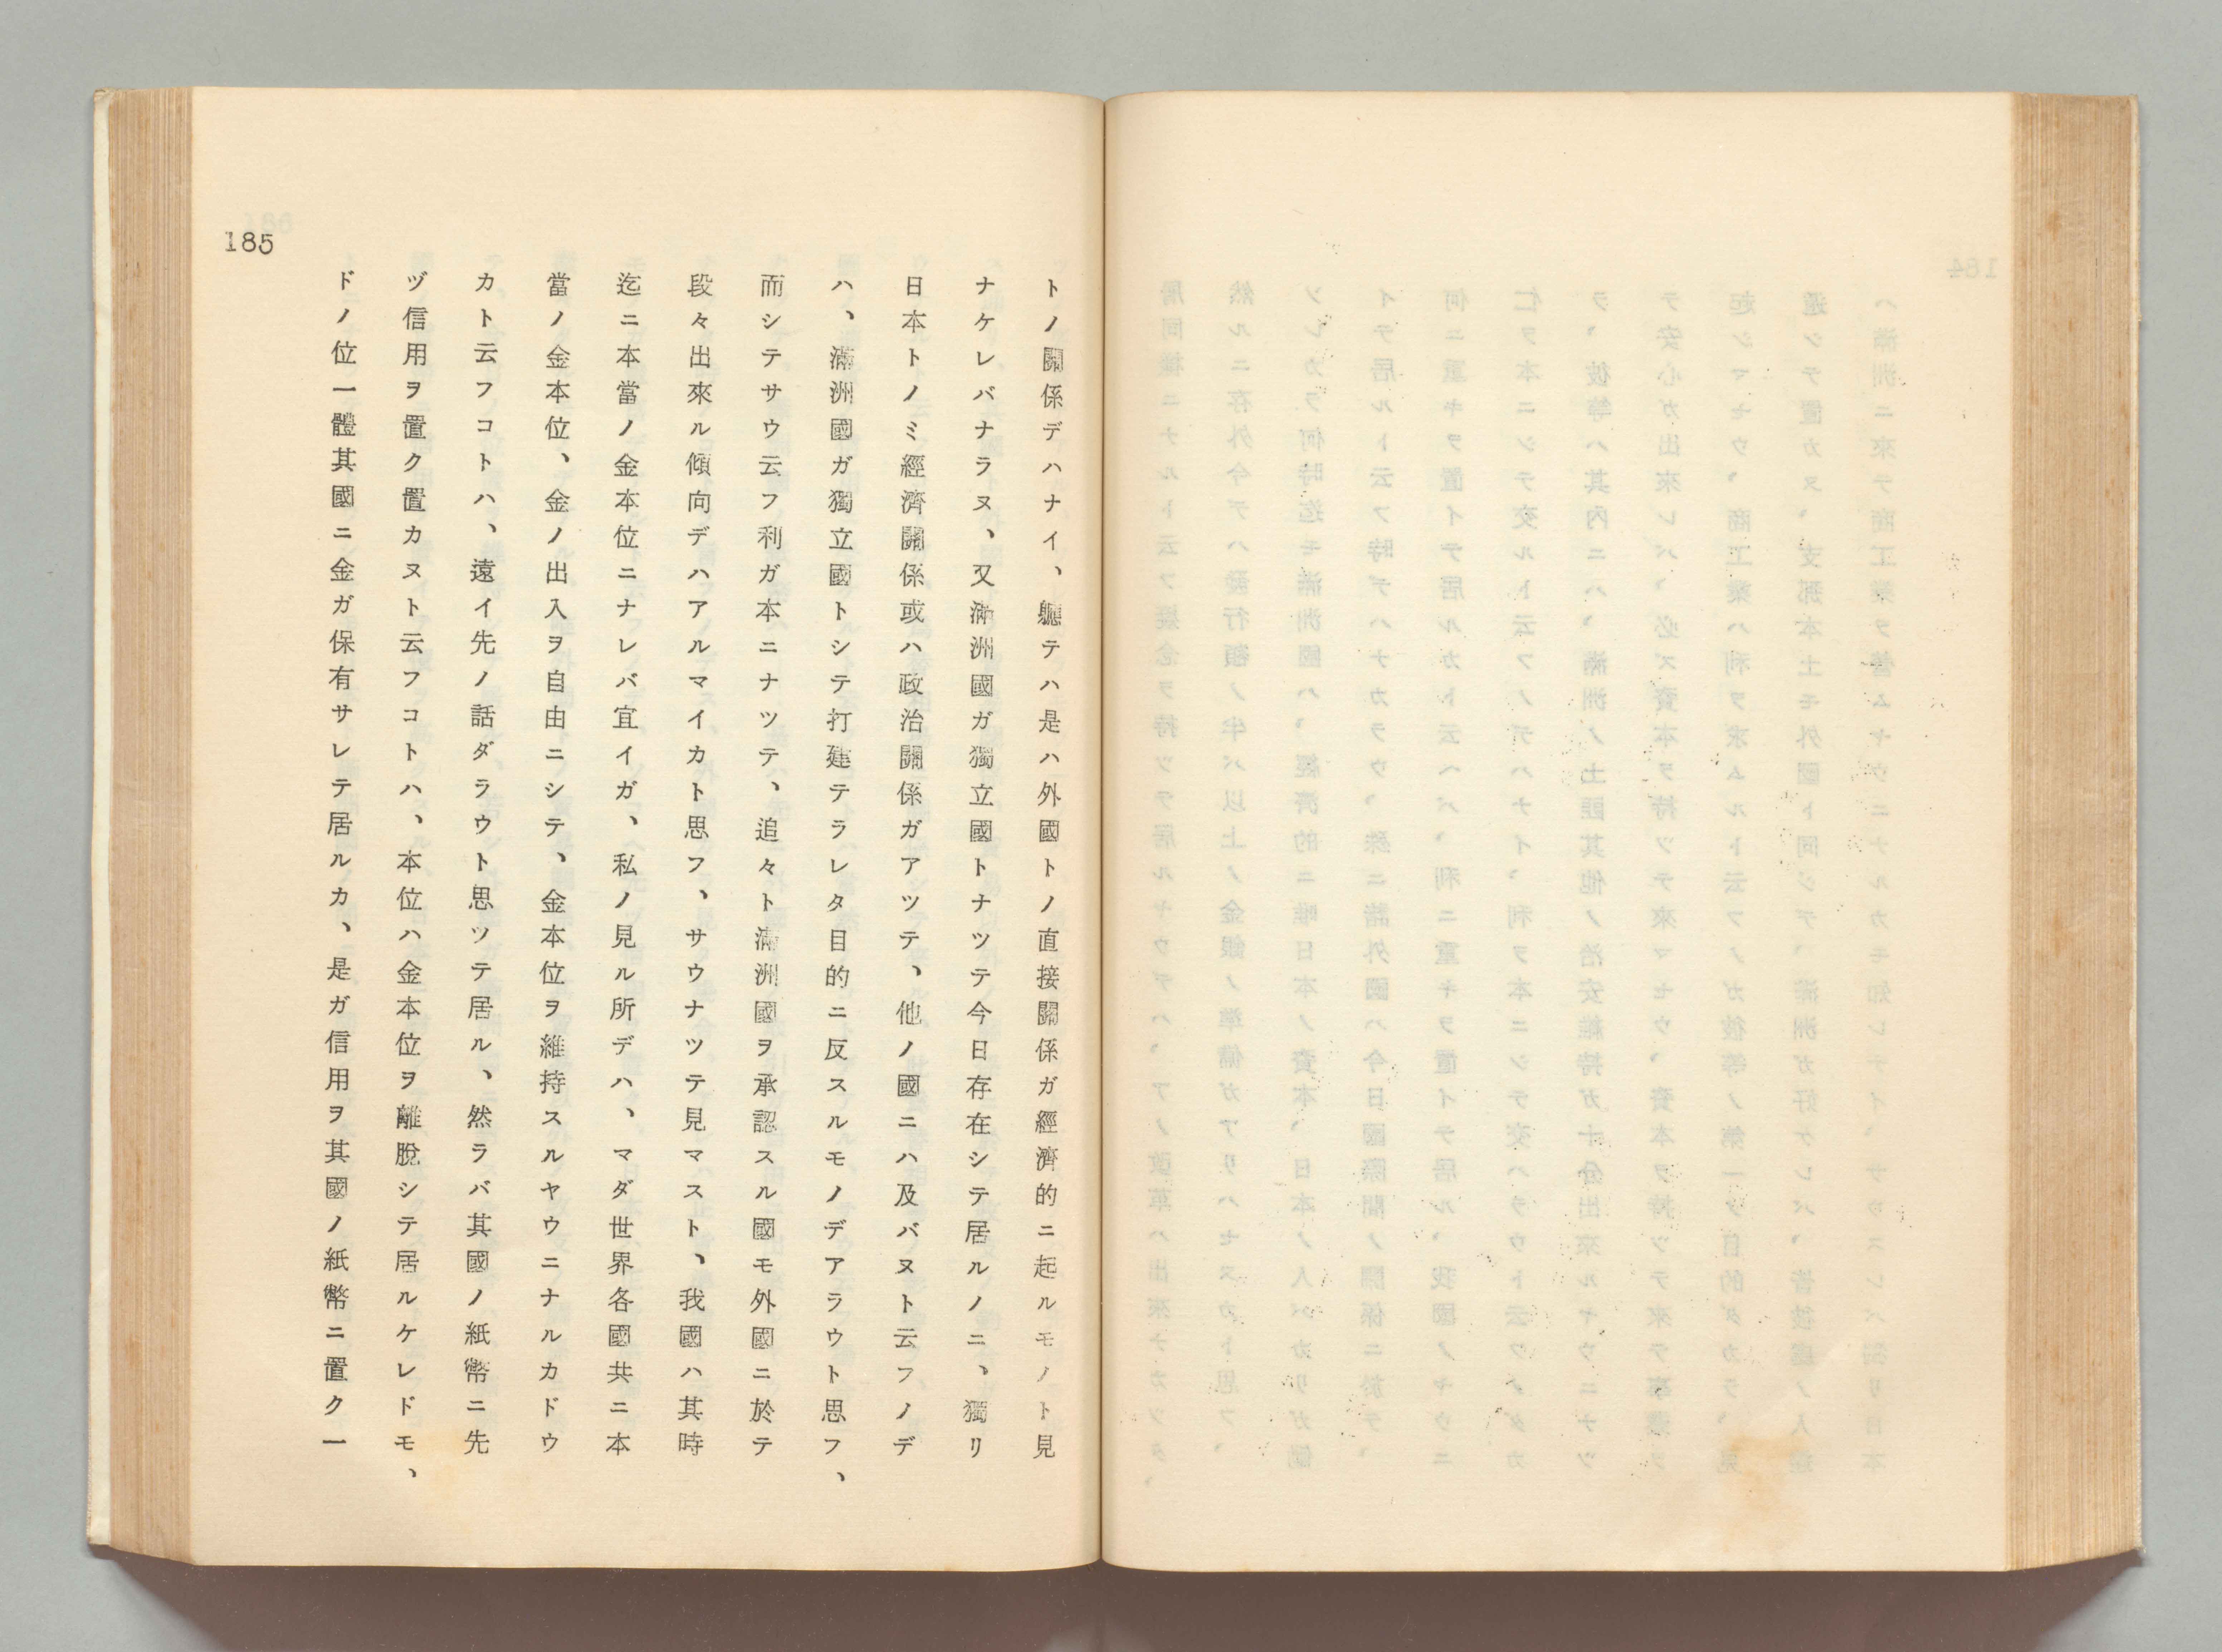 トノ關係デハナイ、軈テハ是ハ外國トノ直接關係ガ經濟的ニ起ルモノト見
ナケレバナラヌ、又滿洲國ガ獨立國トナツテ今日存在シテ居ルノニ、獨リ
日本トノミ經濟關係或ハ政治關係ガアツテ、他ノ國ニハ及バヌト云フノデ
ハ、滿洲國ガ獨立國トシテ打建テラレタ目的ニ反スルモノデアラウト思フ、
而シテサウ云フ利ガ本ニナツテ、追々ト滿洲國ヲ承認スル國モ外國ニ於テ
段々出來ル傾向デハアルマイカト思フ、サウナツテ見マスト、我國ハ其時
迄ニ本當ノ金本位ニナレバ宜イガ、私ノ見ル所デハ、マダ世界各國共ニ本
當ノ金本位、金ノ出入ヲ自由ニシテ、金本位ヲ維持スルヤウニナルカドウ
カト云フコトハ、遠イ先ノ話ダラウト思ツテ居ル、然ラバ其國ノ紙幣ニ先
ヅ信用ヲ置ク置カヌト云フコトハ、本位ハ金本位ヲ離脫シテ居ルケレドモ、
ドノ位一體其國ニ金ガ保有サレテ居ルカ、是ガ信用ヲ其國ノ紙幣ニ置ク一
185